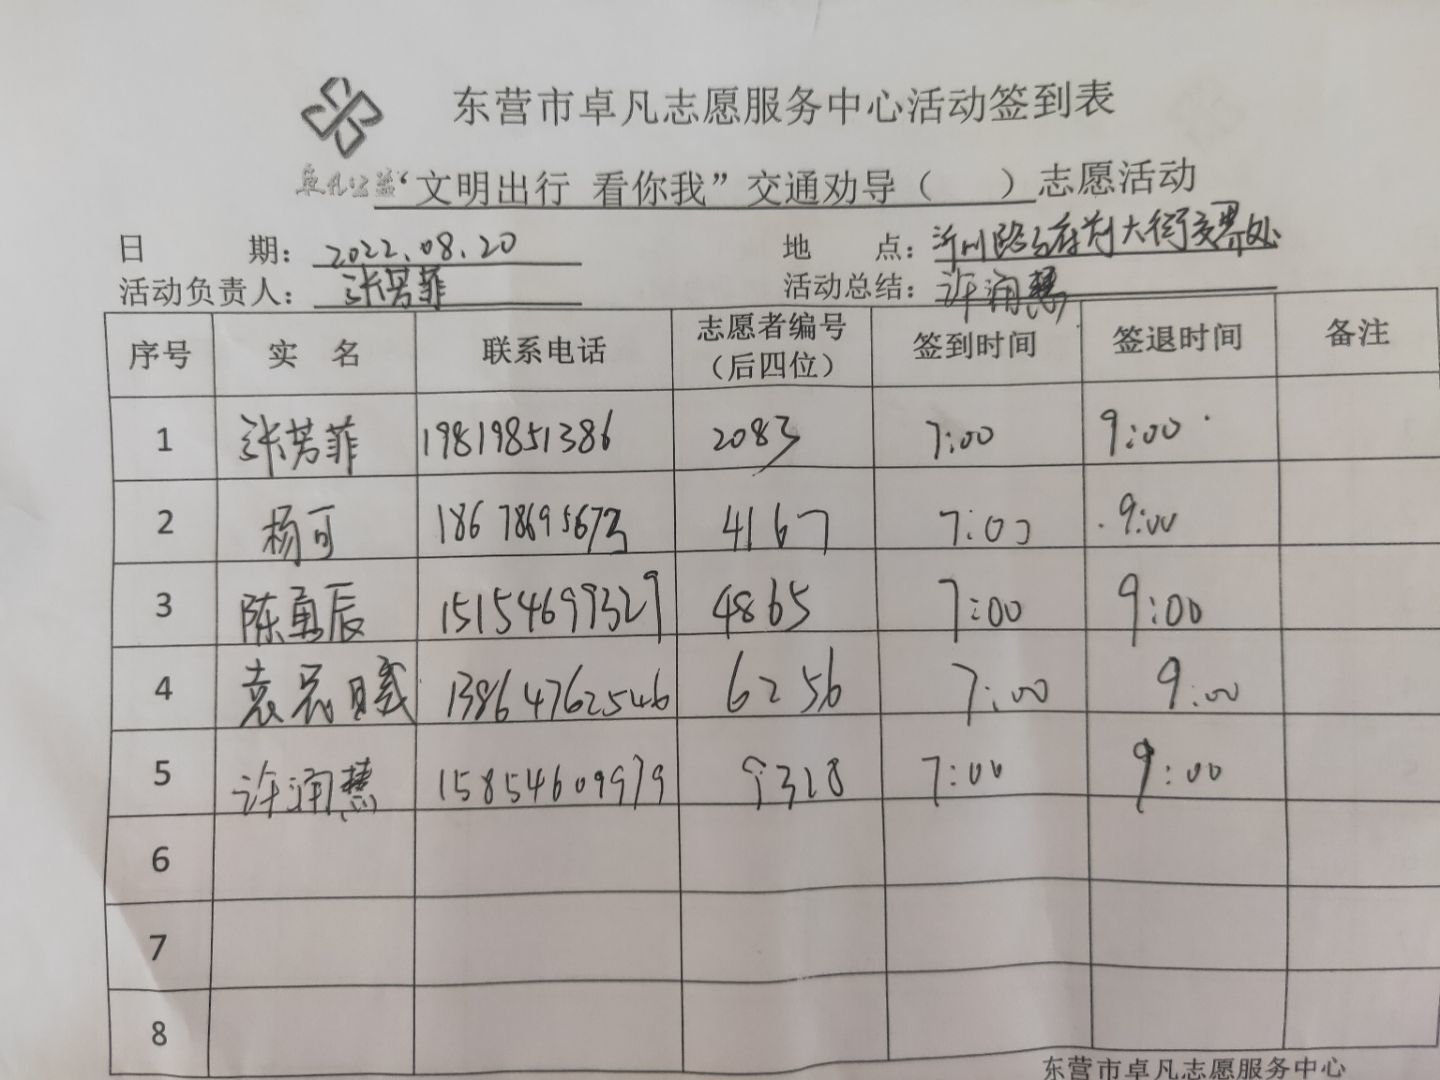 东营市卓凡志愿服务中心活动签到表
卓凡公益
“文明出行 看你我”交通劝导（ ）志愿活动
日 期：2022.08.20 地 点：沂州路与府前大街交界处
活动负责人：张芳菲 活动总结：许润慧
序号 实 名 联系电话 志愿者编号（后四位） 签到时间 签退时间 备注
1 张芳菲 19819851386 2083 7:00 9:00
2 杨可 18678695673 4167 7:00 9:00
3 陈勇辰 15154699329 4865 7:00 9:00
4 袁 13864762546 6256 7:00 9:00
5 许润慧 15854609979 9328 7:00 9:00
6
7
8
东营市卓凡志愿服务中心